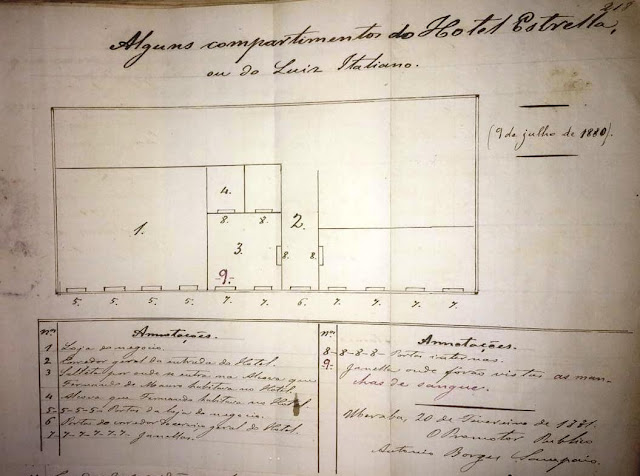 217
Alguns compartimentos do Hotel Estrella,
ou do Luiz Italiano.
(9 de julho de 1880).
4.
1.
2.
8. 8.
3.
8. 8.
9.
5. 5. 5. 5. 7. 7. 6. 7. 7. 7. 7.
Nos Annotações.
1 Loja de negocio.
2 Corredor geral da entrada do Hotel.
3 por onde se entra na Alcova que
Fernando de habitava no Hotel.
4 Alcova que Fernando habitava no Hotel
5-5-5-5 Portas da loja de negocio.
6 Porta do corredor geral do Hotel.
7-7-7-7-7-7 Janellas.
Nos Annotações.
8-8-8-8- Portas internas.
9. Janella onde forão vistas as man-
chas de sangue.
Uberaba, 20 de Fevereiro de 1881.
O Promotor Publico
Antonio Borges Sampaio.